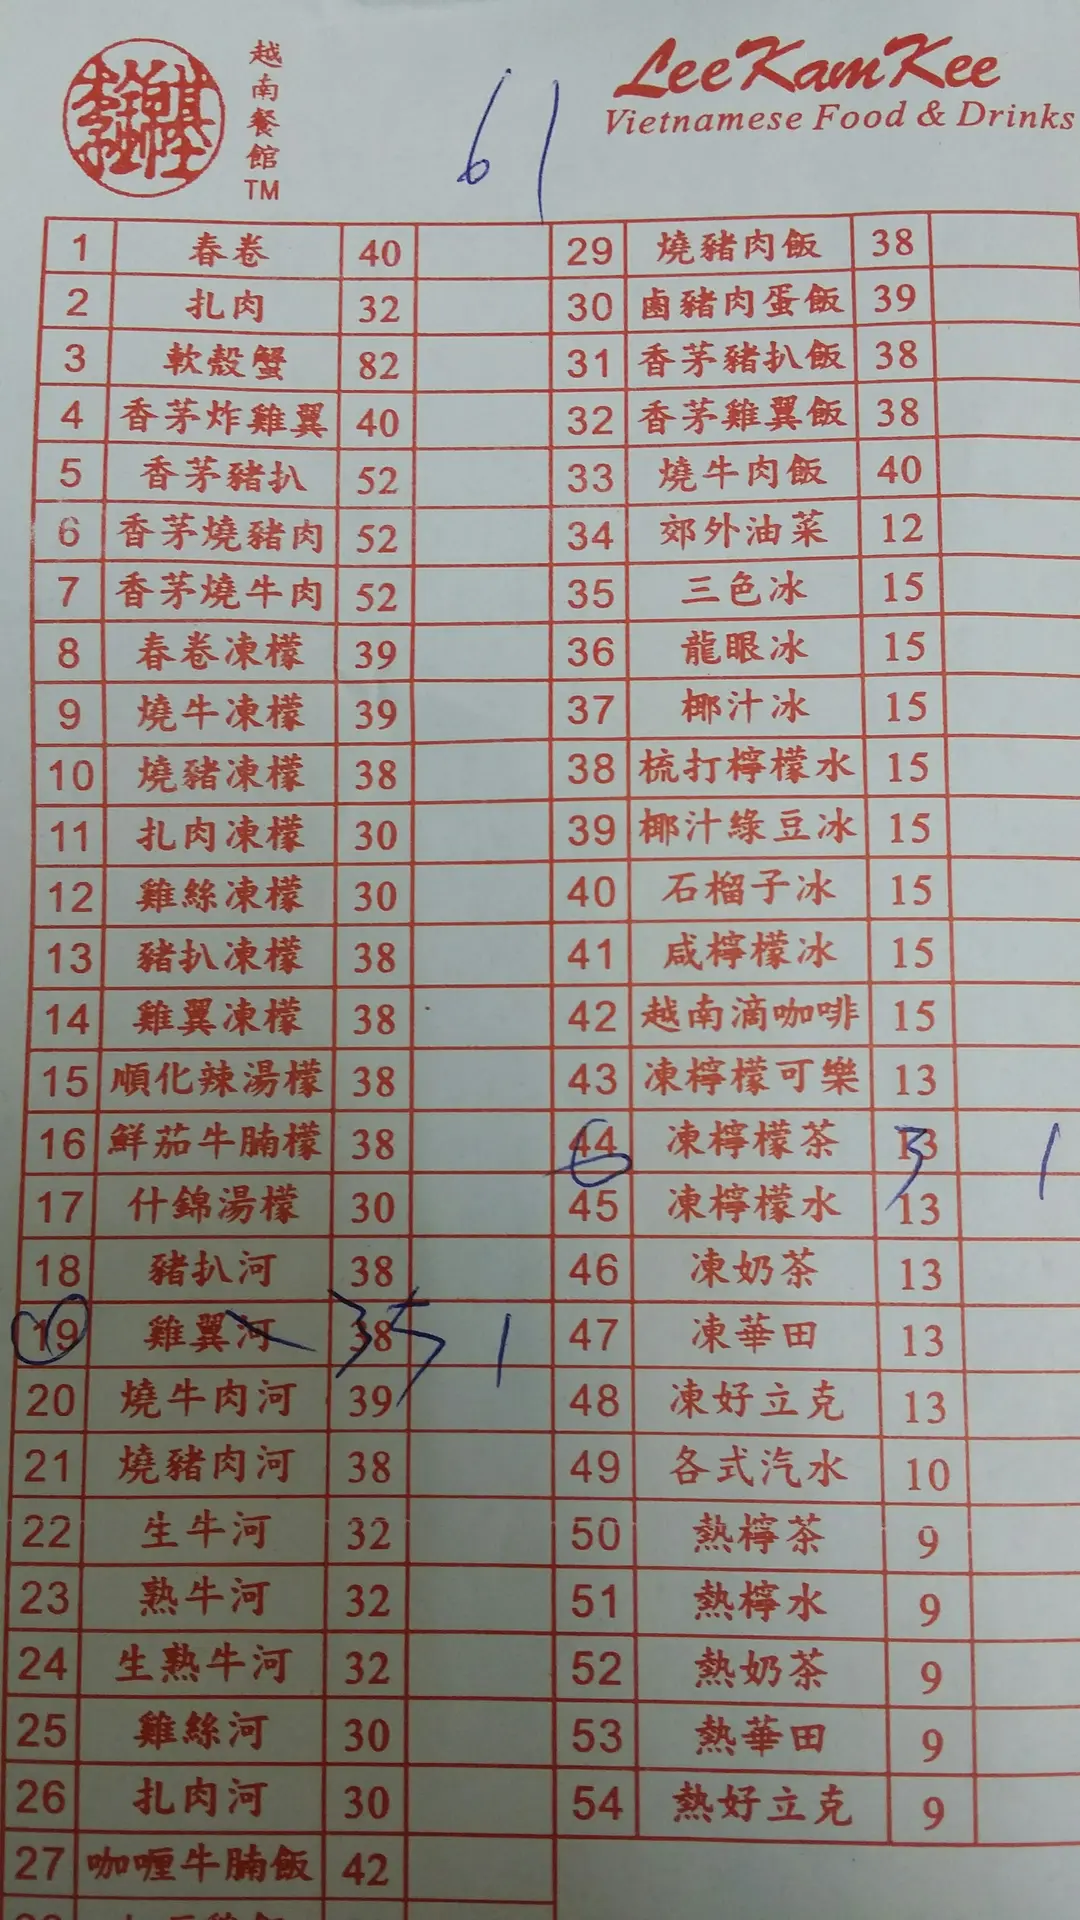 李錦基
越南餐館
TM
LeeKamKee
Vietnamese Food & Drinks
61
1 春卷 40
2 扎肉 32
3 軟殼蟹 82
4 香茅炸雞翼 40
5 香茅豬扒 52
6 香茅燒豬肉 52
7 香茅燒牛肉 52
8 春卷凍檬 39
9 燒牛凍檬 39
10 燒豬凍檬 38
11 扎肉凍檬 30
12 雞絲凍檬 30
13 豬扒凍檬 38
14 雞翼凍檬 38
15 順化辣湯檬 38
16 鮮茄牛腩檬 38
17 什錦湯檬 30
18 豬扒河 38
19 雞翼河 38 35 1
20 燒牛肉河 39
21 燒豬肉河 38
22 生牛河 32
23 熟牛河 32
24 生熟牛河 32
25 雞絲河 30
26 扎肉河 30
27 咖喱牛腩飯 42
29 燒豬肉飯 38
30 鹵豬肉蛋飯 39
31 香茅豬扒飯 38
32 香茅雞翼飯 38
33 燒牛肉飯 40
34 郊外油菜 12
35 三色冰 15
36 龍眼冰 15
37 椰汁冰 15
38 梳打檸檬水 15
39 椰汁綠豆冰 15
40 石榴子冰 15
41 咸檸檬冰 15
42 越南滴咖啡 15
43 凍檸檬可樂 13
44 凍檸檬茶 13 3 1
45 凍檸檬水 13
46 凍奶茶 13
47 凍華田 13
48 凍好立克 13
49 各式汽水 10
50 熱檸茶 9
51 熱檸水 9
52 熱奶茶 9
53 熱華田 9
54 熱好立克 9